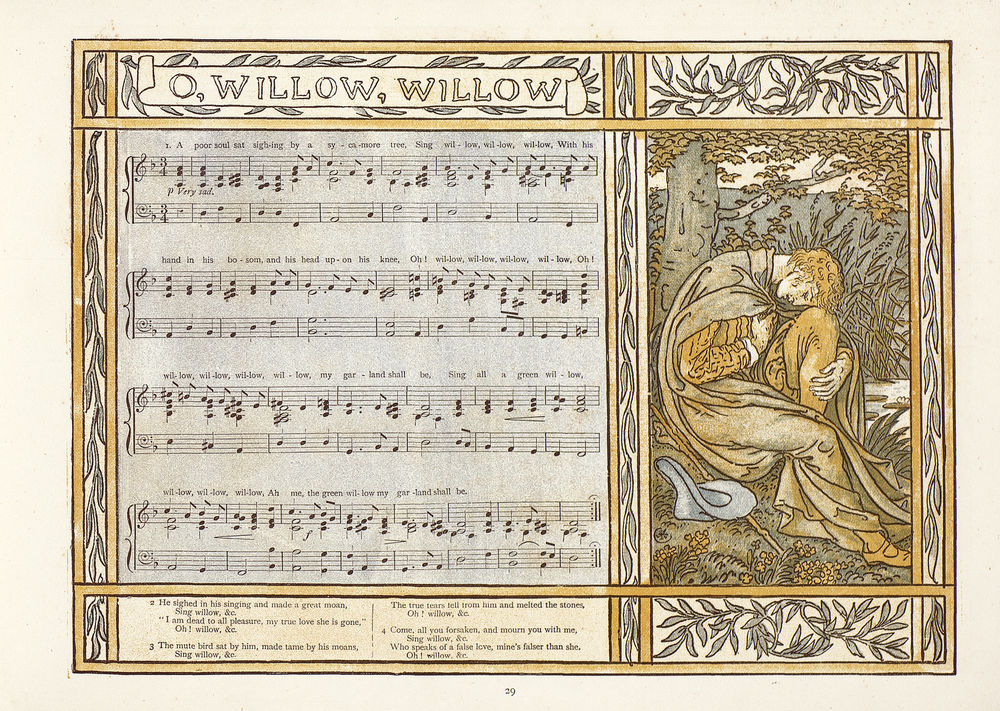 O, WILLOW, WILLOW
1. A poor soul sat sigh-ing by a sy - ca-more tree, Sing wil - low, wil-low, wil-low, With his
p Very sad.
hand in his bo - som, and his head up - on his knee, Oh! wil-low, wil-low, wil-low, wil - low, Oh!
wil- low, wil-low, wil-low, wil - low, my gar - land shall be, Sing all a green wil - low,
wil-low, wil -low, wil-low, Ah me, the green wil- low my gar -land shall be.
f
2 He sighed in his singing and made a great moan,
Sing willow, &c.
"I am dead to all pleasure, my true love she is gone,"
Oh! willow, &c.
3 The mute bird sat by him, made tame by his moans,
Sing willow, &c.
The true tears fell from him and melted the stones,
Oh! willow, &c.
4 Come, all you forsaken, and mourn you with me,
Sing willow, &c.
Who speaks of a false love, mine's falser than she.
Oh! willow, &c.
29